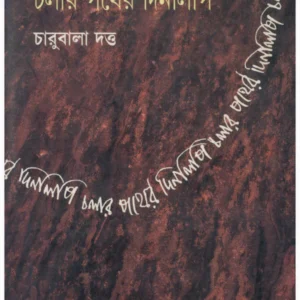 চলার পথের দিনলিপি
চারুবালা দত্ত
র দিনলিপি চলার পথের দিনলিপি চলার পথের দিনলিপি চ